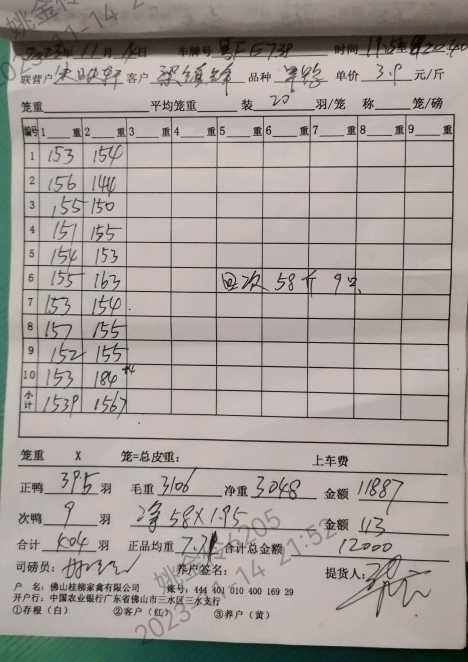 2023年11月14日 车牌号 时间
联营户 客户 品种 单价 3.9 元/斤
笼重 平均笼重 装 20 羽/笼 称 笼/磅
编号 1 重 2 重 3 重 4 重 5 重 6 重 7 重 8 重 9 重
1 153 154
2 156 144
3 155 150
4 157 155
5 154 153
6 155 163 回次 58斤 9只
7 153 154
8 157 155
9 152 155
10 153 184 +4
小计 1539 1567
笼重 X 笼=总皮重: 上车费
正鸭 395 羽 毛重 3106 净重 3048 金额 11887
次鸭 9 羽 净 58X1.95 金额 113
合计 404 羽 正品均重 7.71 合计总金额 12000
司磅员: 养户签名: 提货人:
户 名: 佛山桂柳家禽有限公司 账号: 444 401 010 400 169 29
开户行: 中国农业银行广东省佛山市三水区三水支行
①存根（白） ②客户（红） ③养户（黄）
2023-11-14 21:52